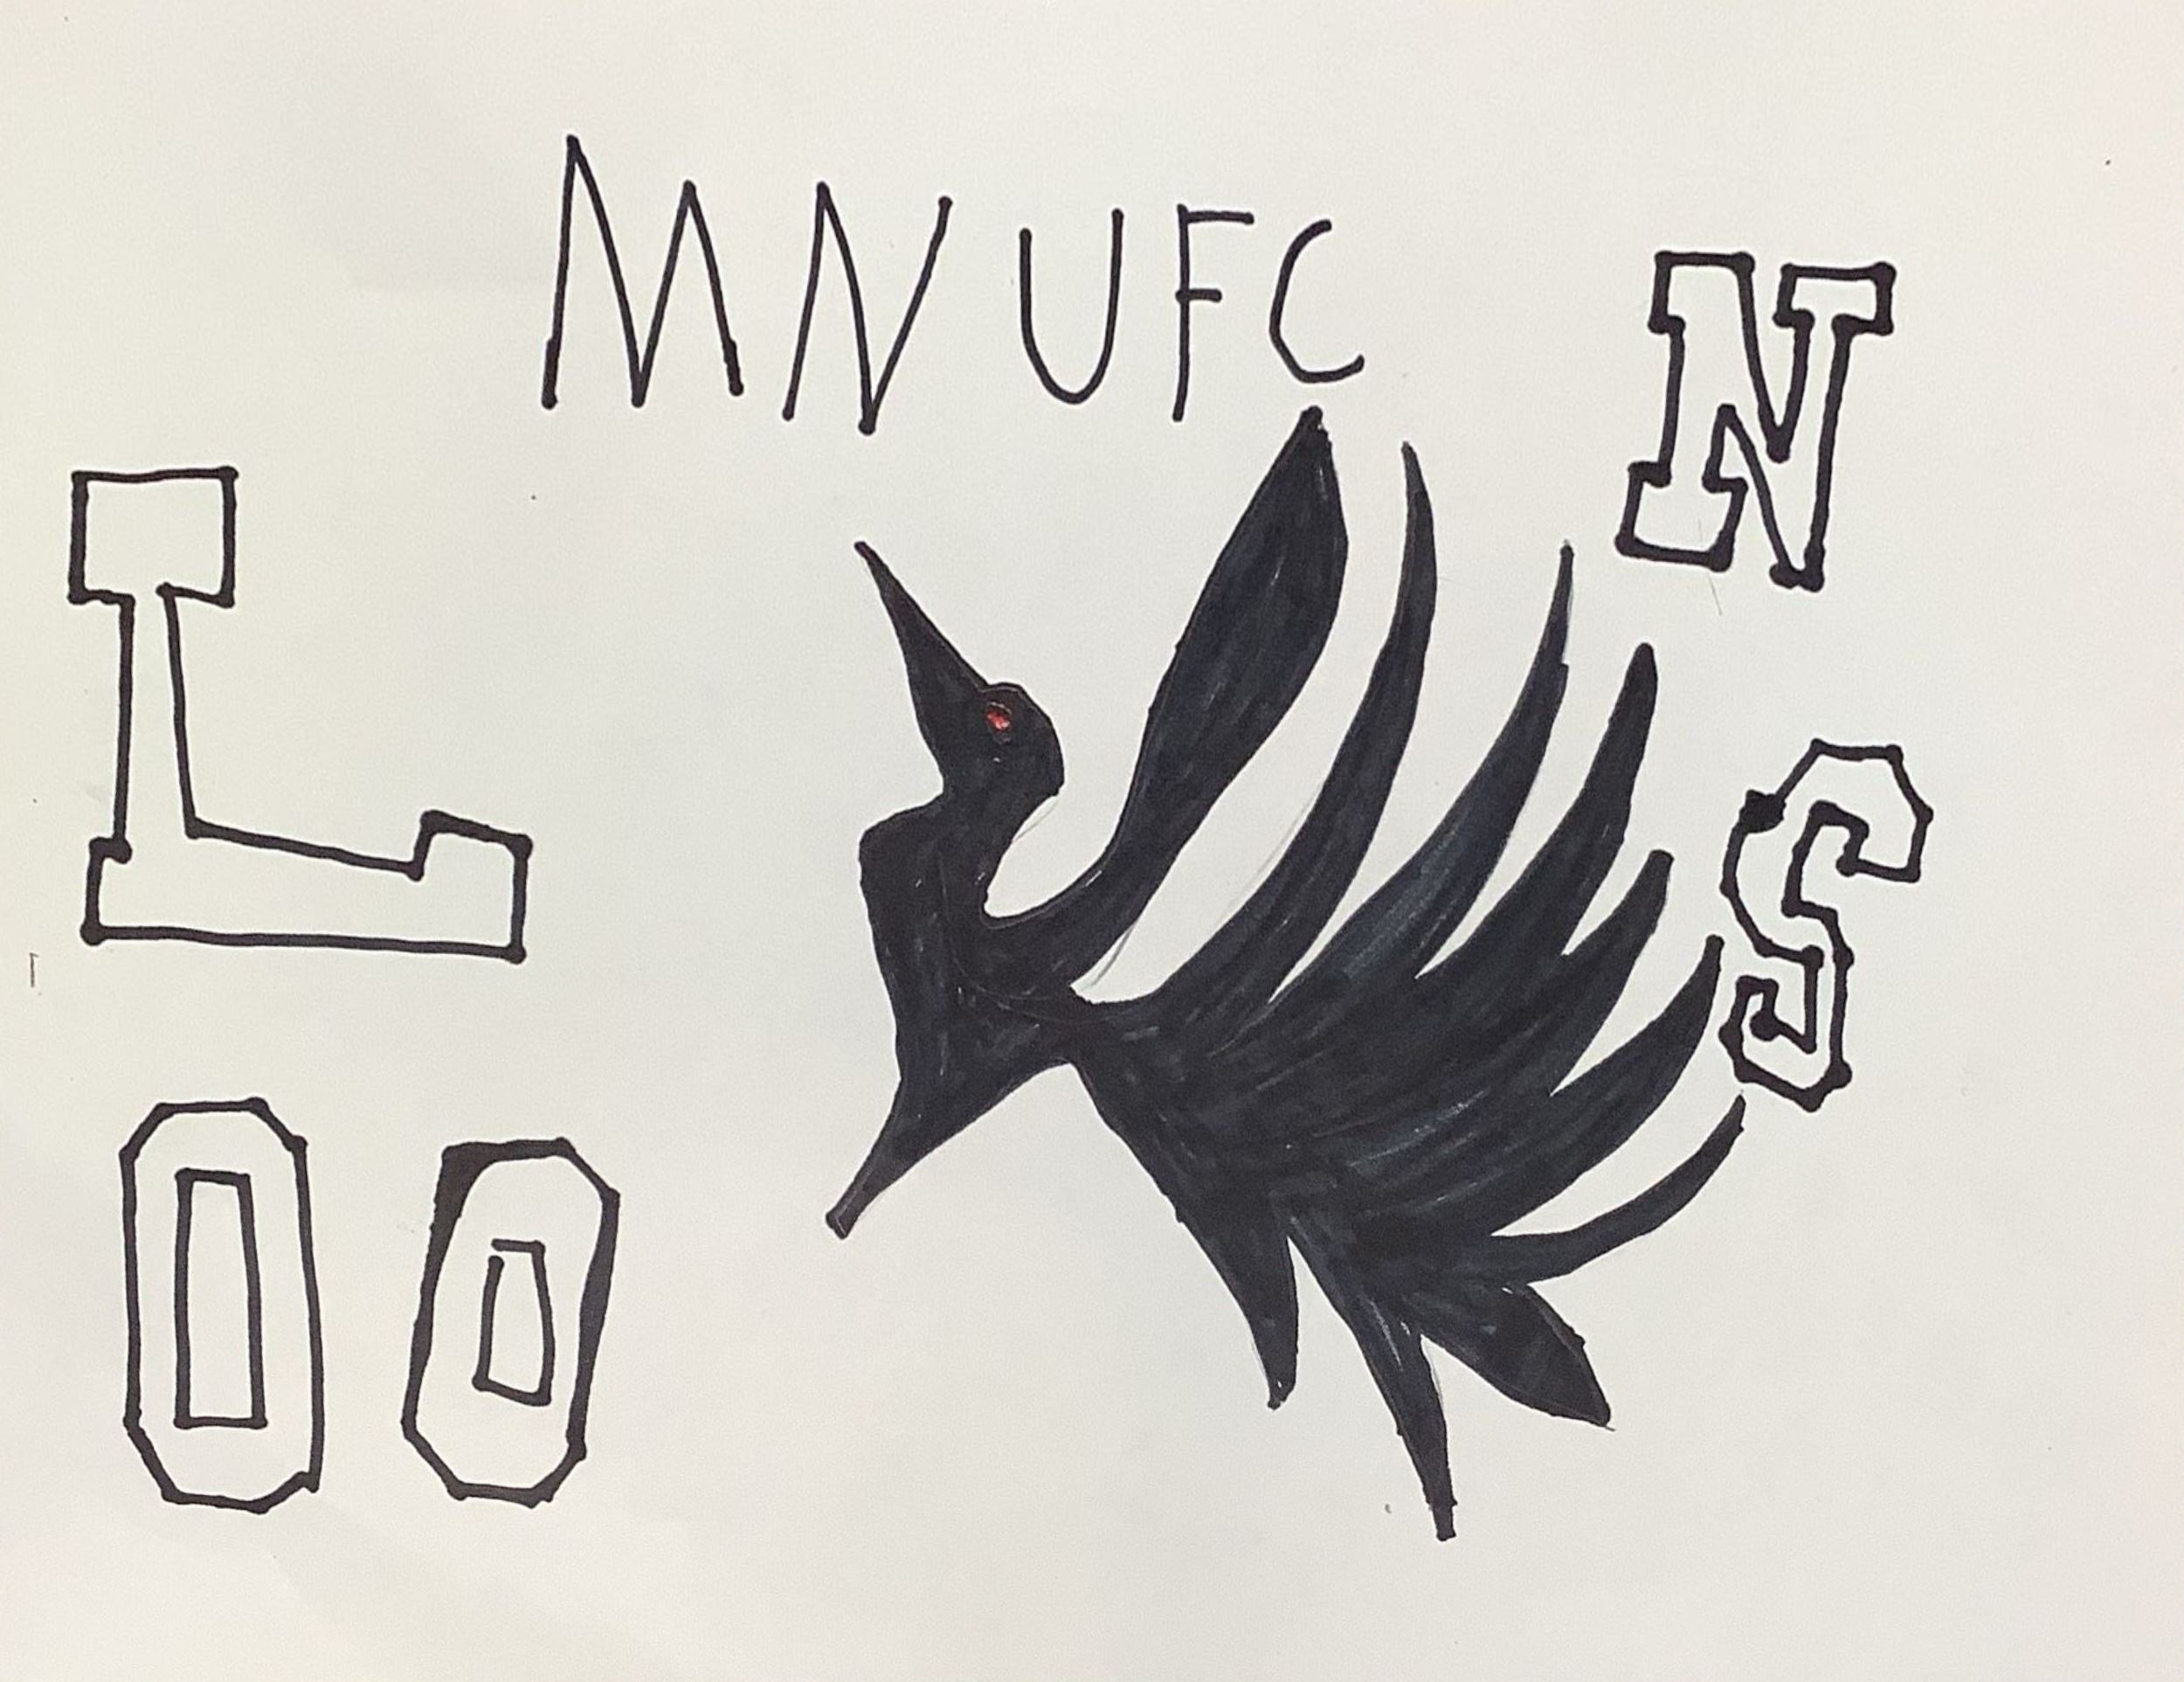 MNUFC
L
OO
N
S